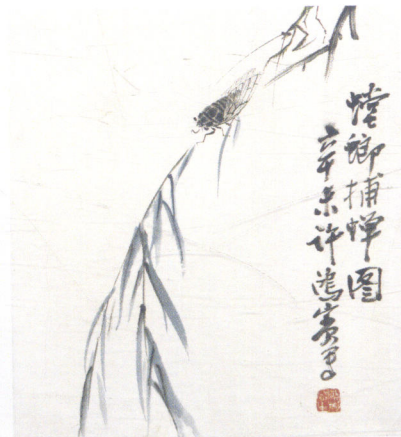 螳螂捕蝉图
辛未许鸿宾写